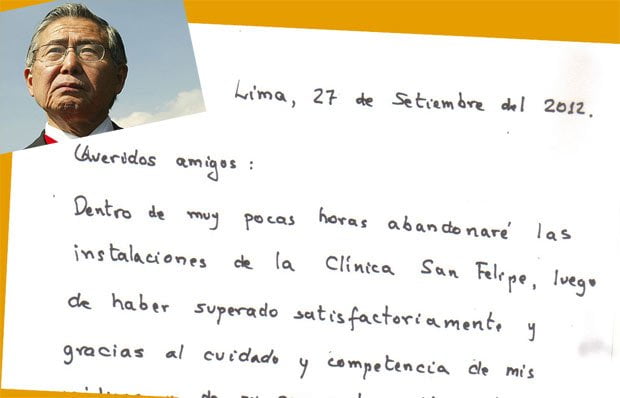 Lima, 27 de Setiembre del 2012.
Queridos amigos:
Dentro de muy pocas horas abandonaré las
instalaciones de la Clínica San Felipe, luego
de haber superado satisfactoriamente y
gracias al cuidado y competencia de mis